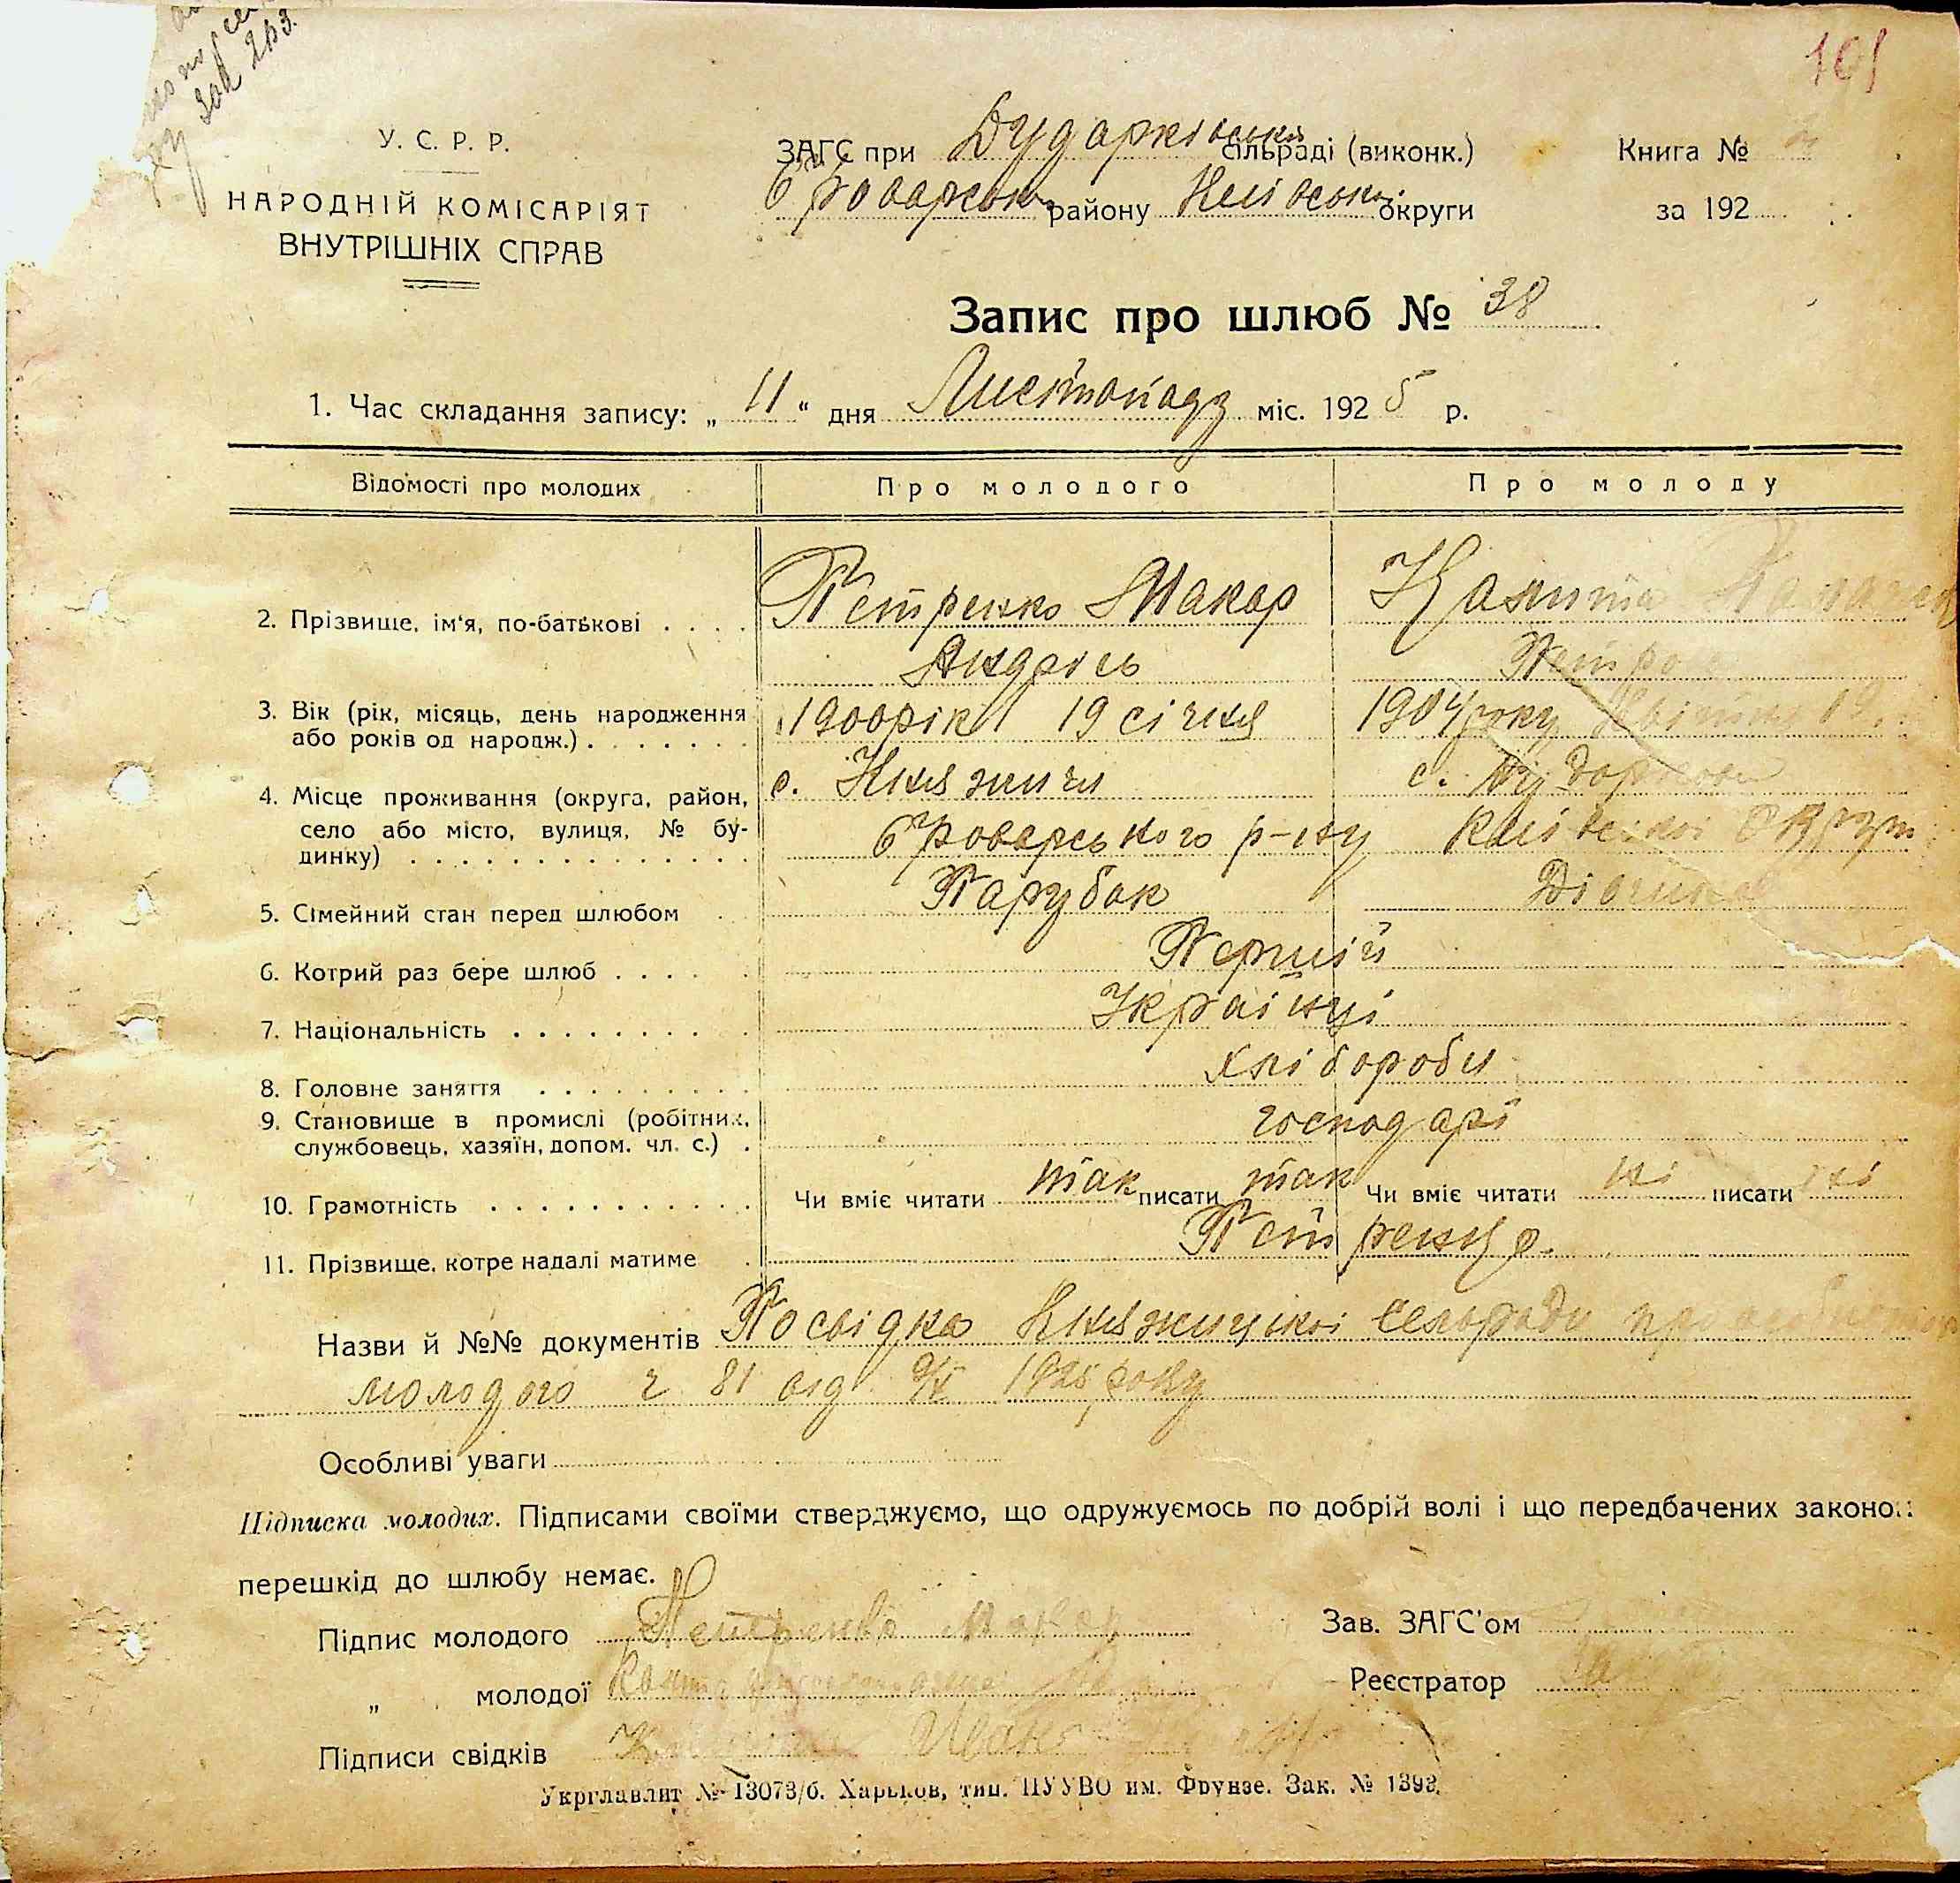 101
У. С. Р. Р.
НАРОДНІЙ КОМІСАРІЯТ
ВНУТРІШНІХ СПРАВ
ЗАГС при Дударківській сільраді (виконк.)
Броварськ. району Київської округи
Книга №
за 192
Запис про шлюб № 38
1. Час складання запису: „ 11 “ дня Листопаду міс. 192 5 р.
Відомості про молодих
Про молодого
Про молоду
2. Прізвище, ім'я, по-батькові . . . .
Петренко Макар
Андрієв
Калита
Петров
3. Вік (рік, місяць, день народження
або років од народж.) . . . . . . .
1900 рік 19 січня
1904 року
4. Місце проживання (округа, район,
село або місто, вулиця, № бу-
динку) . . . . . . . . . . . . . .
с. Княжичи
Броварського р-ну
с. Дударков
Київської Округи
5. Сімейний стан перед шлюбом
Парубок
Дівчина
6. Котрий раз бере шлюб . . . . .
Перший
7. Національність . . . . . . . . .
Українці
8. Головне заняття . . . . . . . . .
хлібороби
9. Становище в промислі (робітник,
службовець, хазяїн, допом. чл. с.) .
господарі
10. Грамотність . . . . . . . . . . .
Чи вміє читати так писати так
Чи вміє читати ні писати ні
11. Прізвище, котре надалі матиме .
Петренко
Назви й №№ документів Посвідка Княжицької сельради про
молодого ч 81 від 9/XI 1925 року
Особливі уваги
Підписка молодих. Підписами своїми стверджуємо, що одружуємось по добрій волі і що передбачених законом
перешкід до шлюбу немає.
Підпис молодого Петренко Макар
Зав. ЗАГС'ом
„ молодої
Реєстратор
Підписи свідків
Укрглавлит № 13073/б. Харьков, тип. ПУУВО им. Фрунзе. Зак. № 1393.